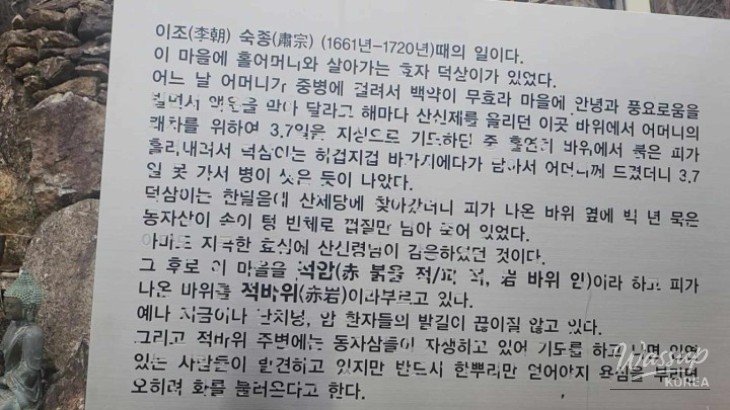 이조(李朝) 숙종(肅宗) (1661년-1720년)때의 일이다.
이 마을에 홀어머니와 살아가는 효자 덕삼이가 있었다.
어느 날 어머니가 중병에 걸려서 백약이 무효라 마을에 안녕과 풍요로움을
빌면서 액운을 막아 달라고 해마다 산신제를 올리던 이곳 바위에서 어머니의
쾌차를 위하여 3.7일을 지성으로 기도하던 중 홀연히 바위에서 붉은 피가
흘러내려서 덕삼이는 허겁지겁 바가지에다가 담아서 어머니께 드렸더니 3.7
일 못 가서 병이 씻은 듯이 나았다.
덕삼이는 한달음에 산제당에 찾아갔더니 피가 나온 바위 옆에 백 년 묵은
동자삼이 속이 텅 빈체로 껍질만 남아 있었다.
아마도 지극한 효심에 산신령님이 감응하였던 것이다.
그 후로 이 마을을 적암(赤 붉을 적/피 적, 岩 바위 암)이라 하고 피가
나온 바위를 적바위(赤岩)이라부르고 있다.
예나 지금이나 난치병, 암 환자들의 발길이 끊이질 않고 있다.
그리고 적바위 주변에는 동자삼들이 자생하고 있어 기도를 하고 나면 인연
있는 사람들이 발견하고 있지만 반드시 한뿌리만 얻어야지 욕심을 부리면
오히려 화를 불러온다고 한다.
Wassup
KOREA